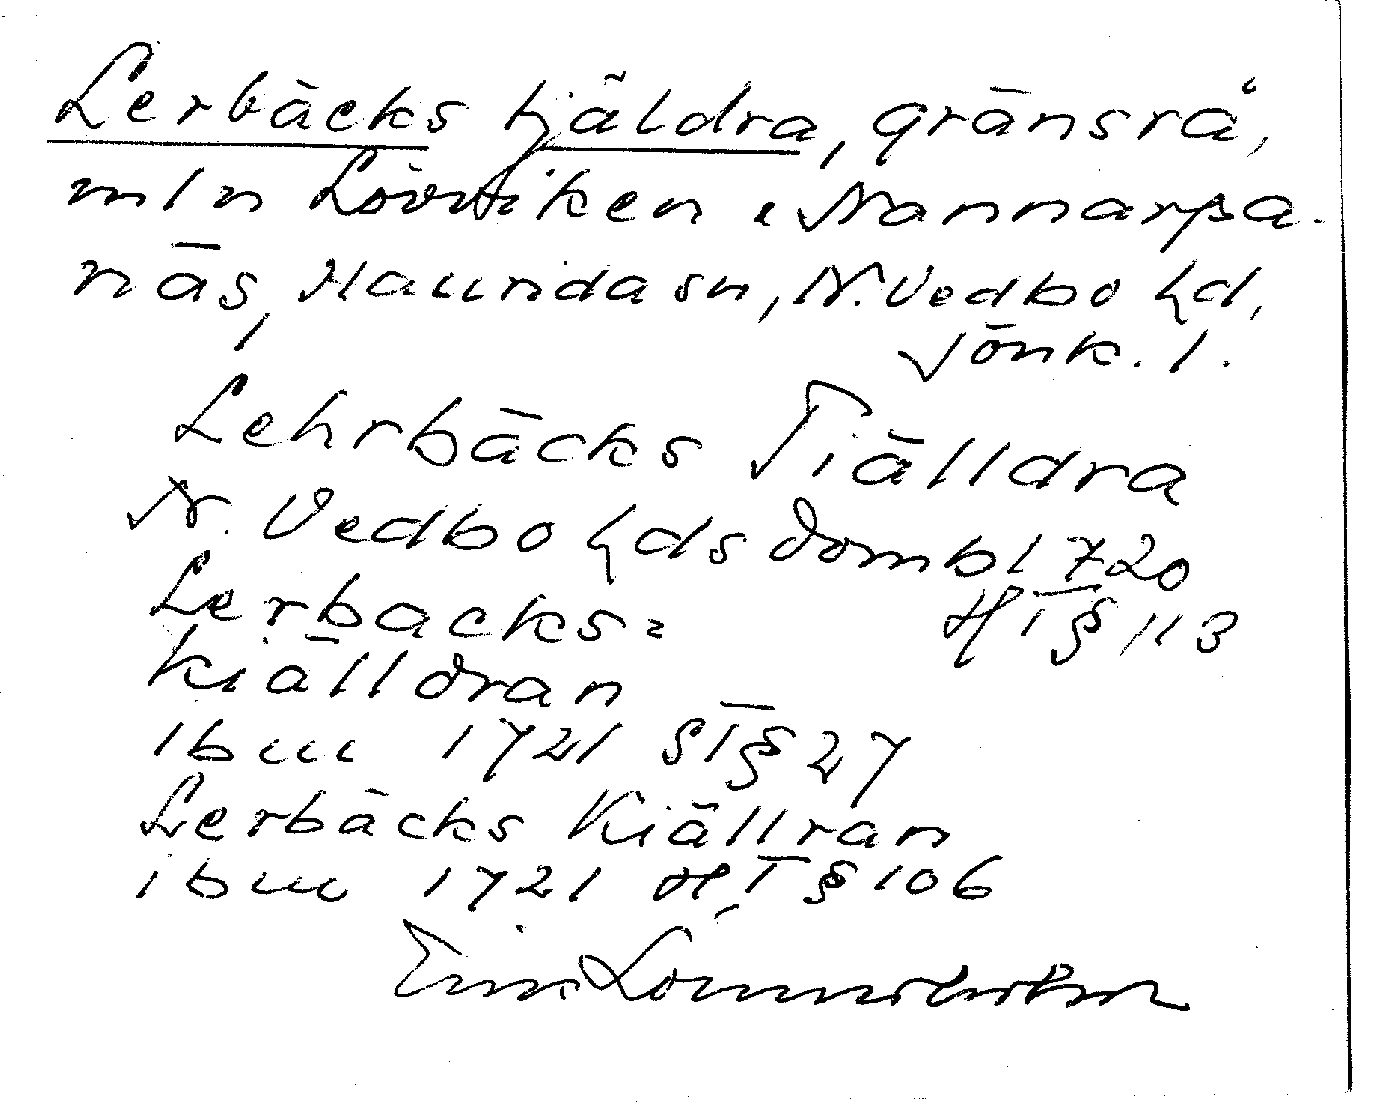 Lerbäcks tjäldra, gränsrå,
mln Lövviken & Nannarpa-
näs, Haurida sn, N. Vedbo hd,
Jönk. l.
Lehrbäcks Tiälldra
N. Vedbo hds dombl 720
HT § 113
Lerbacks=
kiälldran
ibm 1721 ST § 27
Lerbäcks Kiällran
ibm 1721 HT § 106